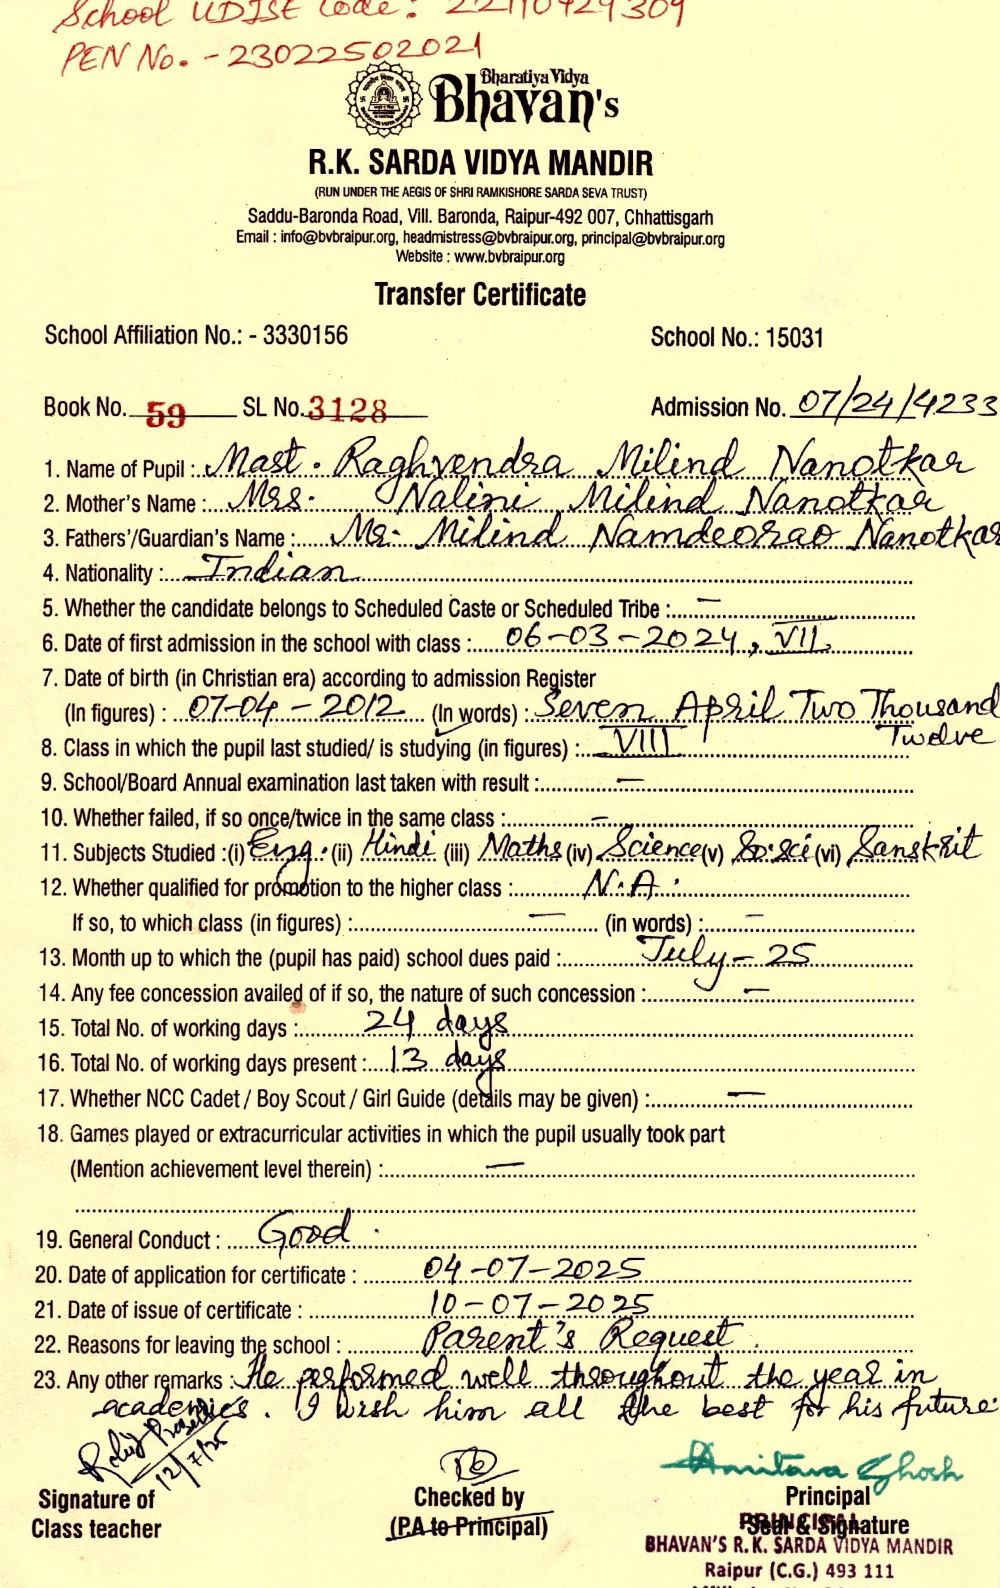 School UDISE Code: 22110929309
PEN No. - 23022502021
Bharatiya Vidya
Bhavan's
R.K. SARDA VIDYA MANDIR
(RUN UNDER THE AEGIS OF SHRI RAMKISHORE SARDA SEVA TRUST)
Saddu-Baronda Road, Vill. Baronda, Raipur-492 007, Chhattisgarh
Email : info@bvbraipur.org, headmistress@bvbraipur.org, principal@bvbraipur.org
Website : www.bvbraipur.org
Transfer Certificate
School Affiliation No.: - 3330156 School No.: 15031
Book No. 59 SL No. 3128 Admission No. 07/24/4233
1. Name of Pupil : Mast. Raghvendra Milind Nanotkar
2. Mother's Name : Mrs. Nalini Milind Nanotkar
3. Fathers'/Guardian's Name : Mr. Milind Namdeorao Nanotkar
4. Nationality : Indian
5. Whether the candidate belongs to Scheduled Caste or Scheduled Tribe : —
6. Date of first admission in the school with class : 06-03-2024, VII
7. Date of birth (in Christian era) according to admission Register
(In figures) : 07-04-2012 (In words) : Seven April Two Thousand
Twelve
8. Class in which the pupil last studied/ is studying (in figures) : VIII
9. School/Board Annual examination last taken with result : —
10. Whether failed, if so once/twice in the same class : —
11. Subjects Studied :(i) Eng. (ii) Hindi (iii) Maths (iv) Science (v) So.sci (vi) Sanskrit
12. Whether qualified for promotion to the higher class : N.A.
If so, to which class (in figures) : — (in words) : —
13. Month up to which the (pupil has paid) school dues paid : July - 25
14. Any fee concession availed of if so, the nature of such concession : —
15. Total No. of working days : 24 days
16. Total No. of working days present : 13 days
17. Whether NCC Cadet / Boy Scout / Girl Guide (details may be given) : —
18. Games played or extracurricular activities in which the pupil usually took part
(Mention achievement level therein) : —
19. General Conduct : Good.
20. Date of application for certificate : 04-07-2025
21. Date of issue of certificate : 10-07-2025
22. Reasons for leaving the school : Parent's Request.
23. Any other remarks : He performed well throughout the year in
academics. I wish him all the best for his future.
12/7/25
Amitava Ghosh
Signature of Checked by Principal
Class teacher (P.A to Principal) Seal & Signature
PRINCIPAL
BHAVAN'S R. K. SARDA VIDYA MANDIR
Raipur (C.G.) 493 111